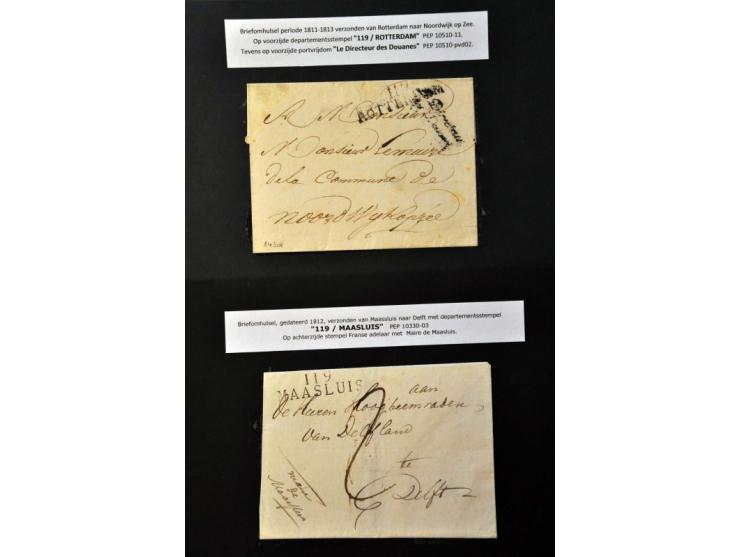 Briefomhulsel periode 1811-1813 verzonden van Rotterdam naar Noordwijk op Zee.
Op voorzijde departementsstempel "119 / ROTTERDAM" PEP 10510-11.
Tevens op voorzijde portvrijdom "Le Directeur des Douanes" PEP 10510-pvd02.
119
ROTTERDAM
A Monsieur
Monsieur Lemaire
de la Commune de
Noordwykopzée
Briefomhulsel, gedateerd 1812, verzonden van Maassluis naar Delft met departementsstempel
"119 / MAASLUIS" PEP 10330-03
Op achterzijde stempel Franse adelaar met Maire de Maasluis.
119
MAASLUIS
aan
de Heeren Hoogheemraden
van Delfland
te
Delft
maire
de
Maassluis